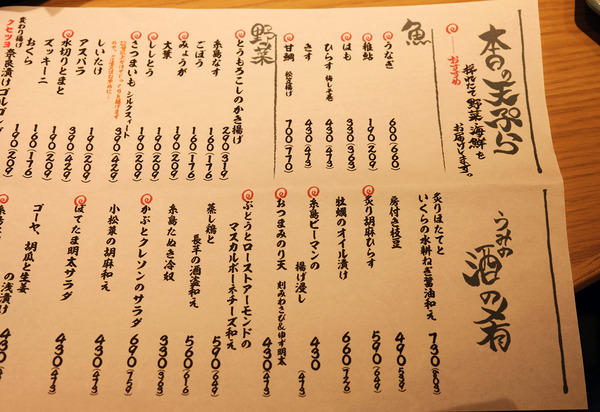 本日の天ぷら
おすすめ
採れたて野菜、海鮮を
お届けします。
魚
うなぎ 600(660)
稚鮎 190(209)
はも 330(363)
ひらす 梅しそ巻 430(473)
きす 430(473)
甘鯛 松笠揚げ 700(770)
野菜
とうもろこしのかき揚げ 290(319)
糸島なす 190(209)
ごぼう 160(176)
みょうが 160(176)
大葉 190(209)
ししとう 190(209)
さつまいも シルクスイート 190(209)
しいたけ 390(429)
アスパラ 190(209)
水切りとまと 390(429)
ズッキーニ 190(209)
おくら 160(176)
変わり揚げ
クセツヨ 奈良漬けゴルゴンゾ 190(209)
うみの酒の肴
炙りほたてと
いくらの水耕ねぎ醤油和え 730(803)
房付き枝豆 490(539)
炙り胡麻ひらす 590(649)
牡蠣のオイル漬け 660(726)
糸島ピーマンの
揚げ浸し 430(473)
おつまみのり天 刻みわさび&ゆず明太 430(473)
ぶとうとローストアーモンドの
マスカルポーネチーズ和え
蒸し鶏と
長芋の酒盗和え 590(649)
糸島たぬき冷奴 560(616)
かぶとクレソンのサラダ 330(363)
小松菜の胡麻和え 690(759)
ほてたま明太サラダ 430(473)
ゴーヤ、胡瓜と生姜 430(473)
の浅漬け 430